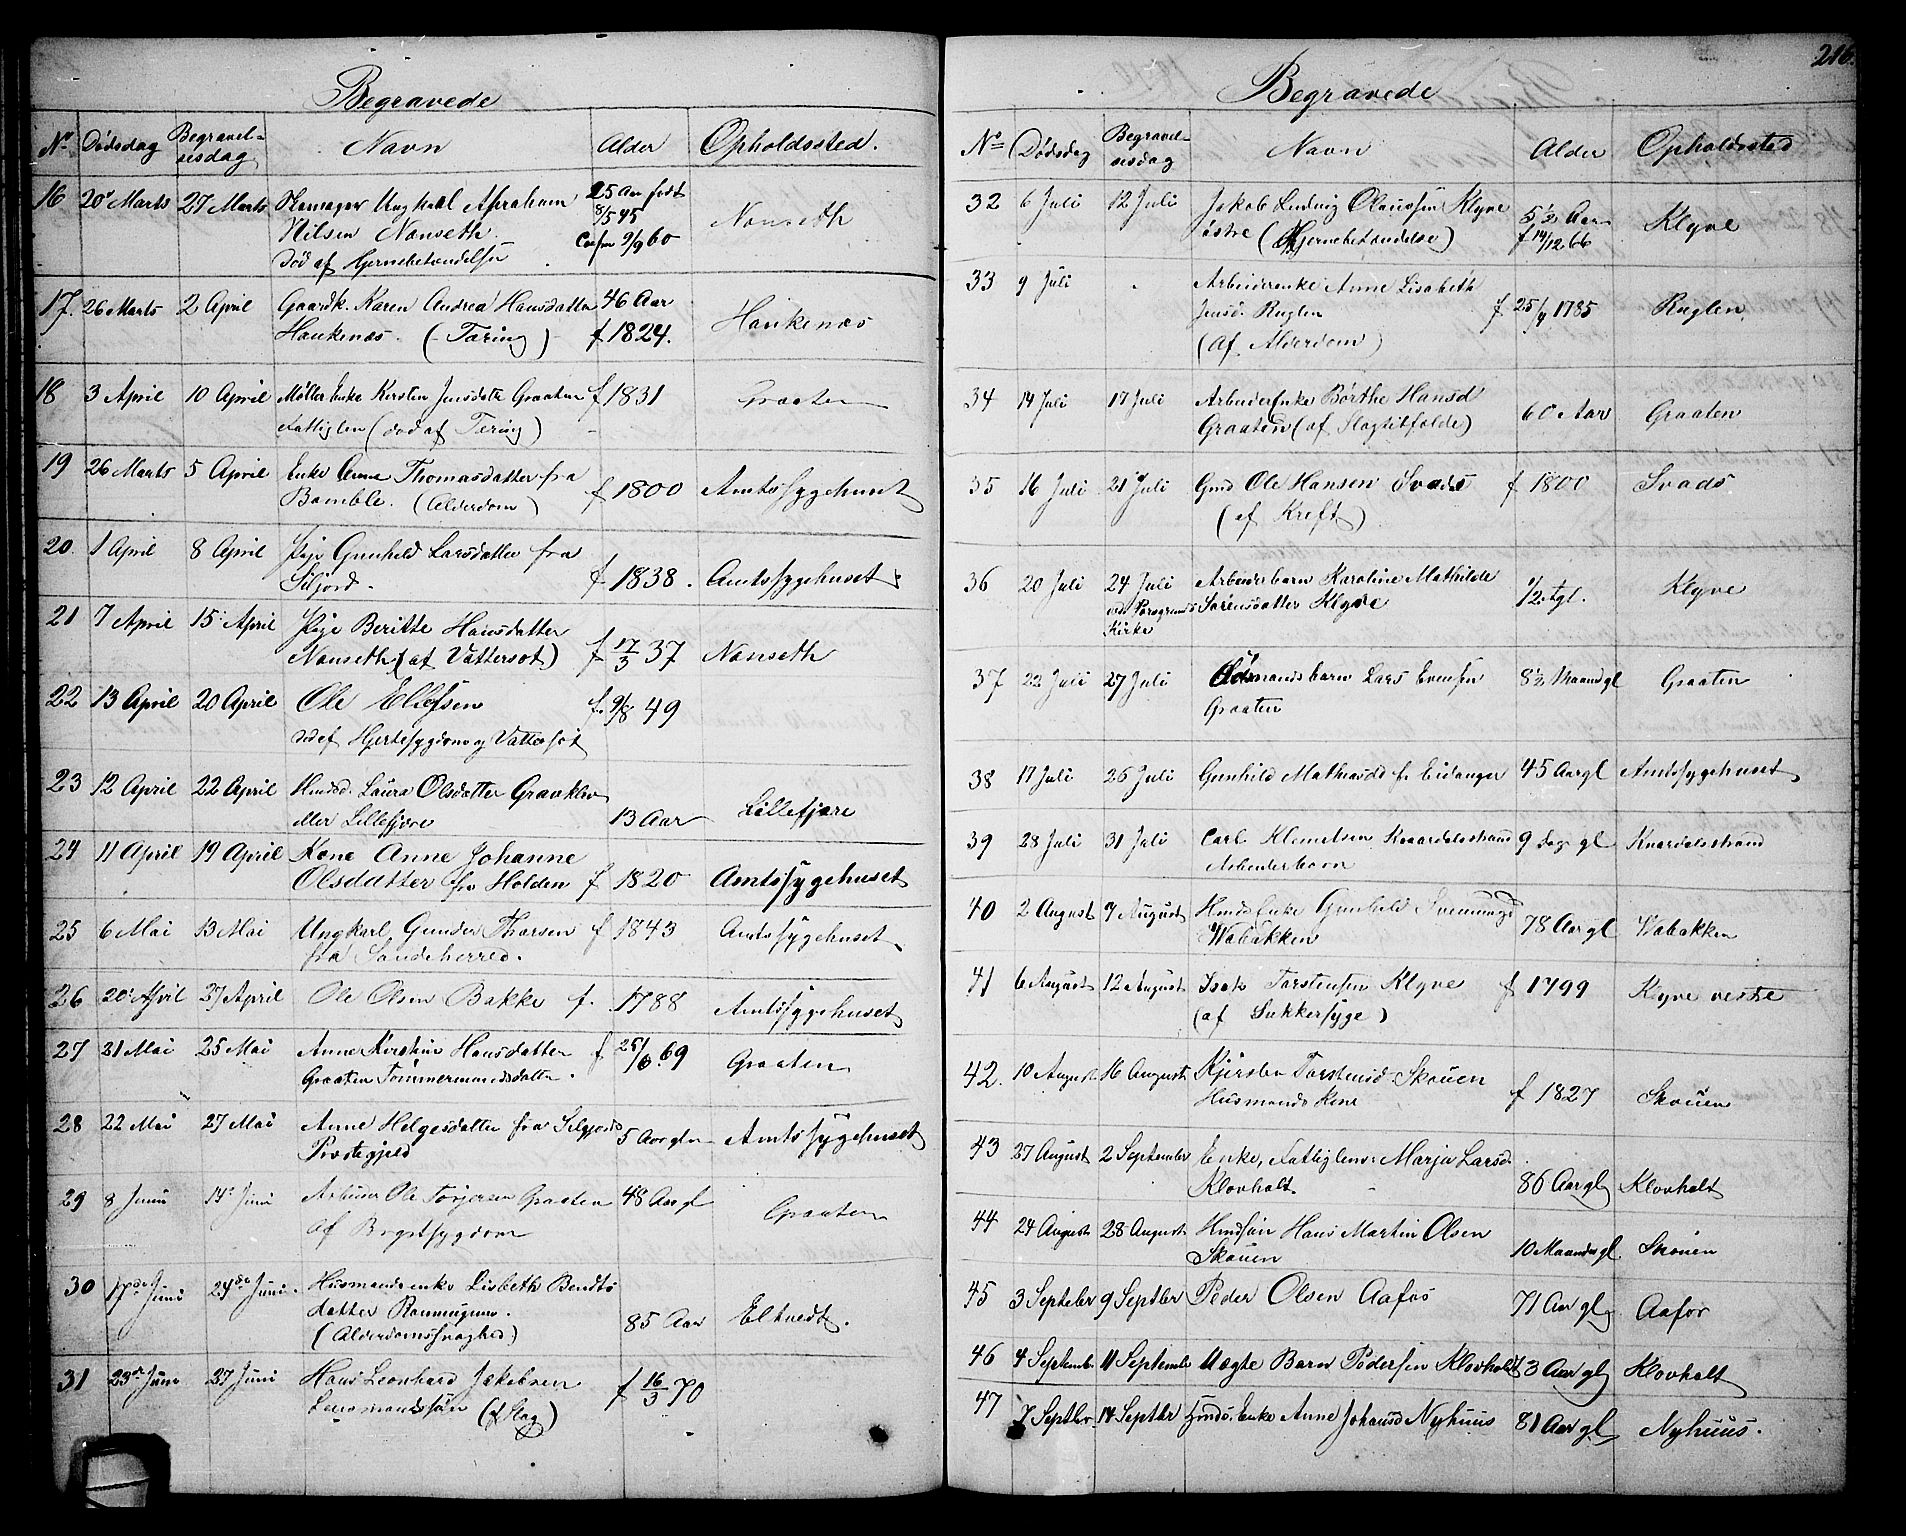 Begravede
No Dødsdag Begravel-
sesdag Navn Alder Opholdssted.
16 20de Marts 27 Marts Skomager Ungkarl Abraham 25 Aar født
Nilsen Nanseth. 8/5 45 Nanseth
død af Hjernebetændelse Confir 9/9 60
17. 26 Marts 2 April Gaardk. Karen Andrea Hansdatter 46 Aar
Haukenæs. (Tæring) f 1824. Haukenæs
18 3 April 10 April Møller Enke Kirsten Jensdatter Graaten f 1831 Graaten
Fattiglem (død af Tæring)
19 26 Marts 5 April Enke Anne Thomasdatter fra
Bamble. (Alderdom) f 1800 Amtssygehuset
20. 1 April 8 April Pige Gunhild Larsdatter fra
Siljord. f 1838. Amtssygehuset
21 7 April 15 April Pige Beritte Hansdatter
Nanseth (af Vattersot) f 17/3 37 Nanseth
22 13 April 20 April Ole Ellefsen f. 9/8 49
død af Hjertesygdom og Vattersot
23 12 April 22 April Huusd. Laura Olsdatter Gravklev
eller Lillefjære 13 Aar Lillefjære
24 11 April 19 April Kone Anne Johanne
Olsdatter fra Holden f 1820 Amtssygehuset
25 6 Mai 13 Mai Ungkarl Gunder Thorsen f 1843 Amtssygehuset
fra Sandeherred.
26 20 April 27 April Ole Olsen Bakke f. 1788 Amtssygehuset
27 21 Mai 25 Mai Anne Kirstine Hansdatter f 25/6 69
Graaten Tømmermandsdatter. Graaten
28 22 Mai 27 Mai Anne Helgesdatter fra Silgjords 5 Aar gl Amtssygehuset
Præstegjeld
29 8 Juni 14de Juni Arbeider Ole Torjersen Graaten 48 Aar gl
af Brystsygdom Graaten
30 17de Juni 24de Juni. Husmandsenke Lisbeth Bendts
datter
(Alderdomssvaghed) 85 Aar Eltvedt.
31 23de Juni 27 Juni Hans Leonhard Jakobsen
Lensmandssøn (af Slag) f 16/3 70
216.
Begravede
No Dødsdag Begravel-
sesdag Navn Alder Opholdssted
32 6 Juli 12 Juli Jakob Ludvig Olaussen Klyve 5 1/2 Aar
østre (Hjernebetændelse) f 14/12 66 Klyve
33 9 Juli Arbeiderenke Anne Lisabeth
Jensd. Ruglen f 25/4 1785 Ruglen
(Af Alderdom)
34 14 Juli 17 Juli Arbeider Enke Børthe Hansd
Graaten (af Slagtilfælde) 60 Aar Graaten
35 16 Juli 21 Juli Gmd Ole Hansen Svads f 1800 Svads
(af Kreft)
36 20 Juli 24 Juli Arbeiderbarn Karoline Mathilde
ved Porsgrunds Sørensdatter Klyve 1/2 Agl. Klyve
Kirke
37 22 Juli 27 Juli Lars Evensen 8 1/2 Maand gl Graaten
Graaten
38 17 Juli 26 Juli Gunhild Mathiasd fr Eidanger 45 Aar gl Amtssygehuset
39 28 Juli 31 Juli Carl Klemetsen Knardalsstrand 9 Dage gl Knardalsstrand
Arbeiderbarn
40 2 August 7 August Huusm Enke Gunhild Svenungsd
Wabakken 78 Aar gl Wabakken
41 6 August 12 August Isak Torstensen Klyve f 1799 Klyve vestre
(af Sukkersyge)
42. 10 August 16 August Kjersten Torstensd Skouen
Husmands Kone f 1827 Skouen
43 27 August 2 September Enke, Fattiglem: Marja Larsd.
Klovholt. 86 Aar gl Klovholt
44 24 August 28 August Huusm.søn Hans Martin Olsen
Skouen 10 Maaneder gl. Skouen
45 3 Septeber 9 Septbr Peder Olsen Aafos 71 Aar gl Aafos
46 4 Septembr 11 Septembr Uægte Barn Pedersen Klovholt 3 Aar gl Klovholt
47 7 Septbr 14 Septbr Huusm. Enke Anne Johansd Nyhuus 81 Aar gl Nyhuus.